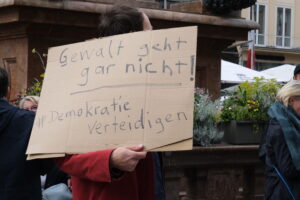 Gewalt geht
gar nicht!
#Demokratie
verteidigen